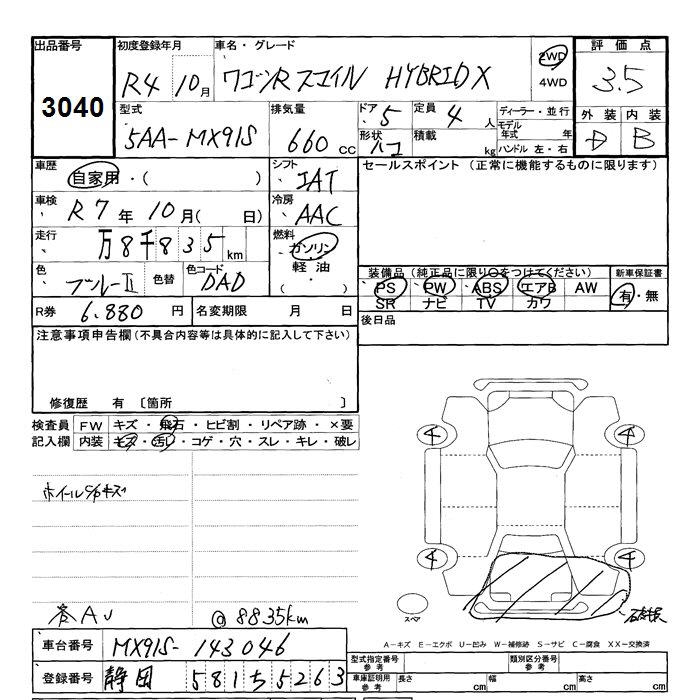 出品番号 初度登録年月 車名・グレード 評価点
3040 R4 10月 ワゴンRスマイル HYBRID X 2WD 4WD 3.5
型式 排気量 ドア 5 定員 4人 ディーラー・並行 外装 内装
5AA-MX91S 660cc 形状 ハコ 積載 kg モデル年式 年 D B
ハンドル 左・右
車歴 自家用・( ) シフト IAT セールスポイント (正常に機能するものに限ります)
車検 R7年10月( 日) 冷房 AAC
走行 万8千835km 燃料 ガソリン 軽油 ( )
色 ブルーII 色替 色コード DAD 装備品(純正品に限り○をつけてください) 新車保証書
PS PW ABS エアB AW 有・無
R券 6.880円 名変期限 月 日 SR ナビ TV カワ
注意事項申告欄(不具合内容等は具体的に記入して下さい) 後日品
修復歴 有 〔箇所 〕
検査員記入欄 FW キズ・飛石・ヒビ割・リペア跡・×要
内装 キズ・汚れ・コゲ・穴・スレ・キレ・破レ
4 4
ホイールC/Pキズ
4 4
スペア
@8835km
A-キズ E-エクボ U-凹み W-補修跡 S-サビ C-腐食 XX-交換済
車台番号 MX91S-143046 型式指定番号 参考 類別区分番号 参考
登録番号 静岡 581 ち 5263 車庫証明用 参考 長さ cm 幅 cm 高さ cm